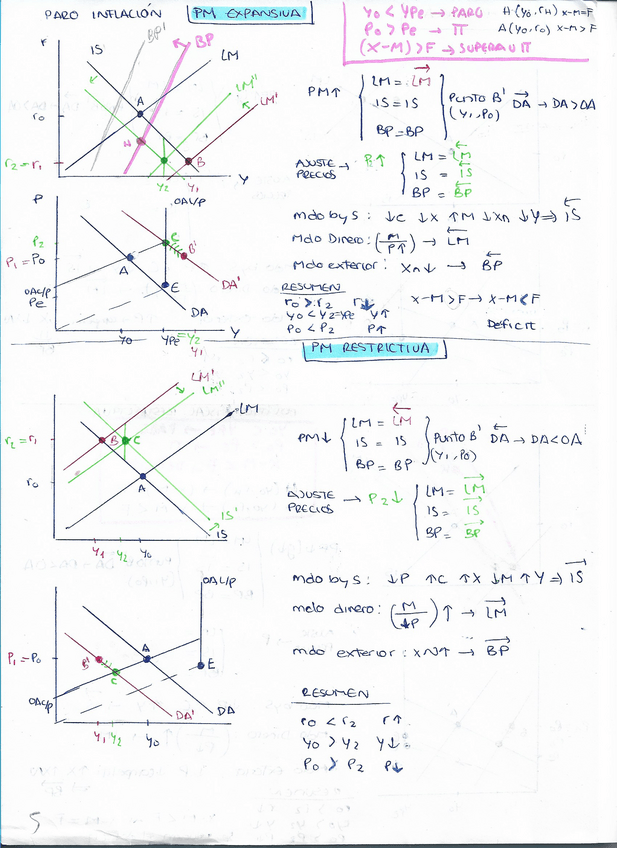 PARO INFLACIÓN PM EXPANSIVA
Yo < YPe → PARO H (Yo, rH) X-M=F
Po > Pe → Π A (Yo, ro) X-M > F
(X-M) > F → SUPERAVIT
r IS BP' BP LM
LM''
LM'
A
ro
H
r2 = r1
B
Y2 Y1 Y
PM↑ LM = LM
IS = IS
BP = BP
PUNTO B'
(Y1, Po)
DA → DA > OA
AJUSTE PRECIOS → P2↑
LM = LM
IS = IS
BP = BP
P
OAL/P
P2
P1 = Po
C
B'
A
OAC/P
Pe
E
DA'
DA
Yo YPe = Y2
Y1
Y
mdo b y S: ↓C ↓X ↑M ↓Xn ↓Y ⇒ IS
Mdo Dinero: (M/P↑) → LM
Mdo exterior: Xn↓ → BP
RESUMEN
ro > r2 r↓ X-M > F → X-M < F
Yo < Y2 = Ype Y↑
Po < P2 P↑ Déficit
PM RESTRICTIVA
LM'
LM''
LM
r2 = r1
B C
ro
A
IS'
IS
Y1 Y2 Yo
PM↓ LM = LM
IS = IS
BP = BP
PUNTO B'
(Y1, Po)
DA → DA < OA
AJUSTE PRECIOS → P2↓
LM = LM
IS = IS
BP = BP
OAL/P
P1 = Po
B'
A
E
C
OAC/P
DA'
DA
Y1 Y2 Yo
mdo b y S: ↓P ↑C ↑X ↓M ↑Y ⇒ IS
mdo dinero: (M/↓P) ↑ → LM
mdo exterior: XN↑ → BP
RESUMEN
ro < r2 r↑
Yo > Y2 Y↓
Po > P2 P↓
5